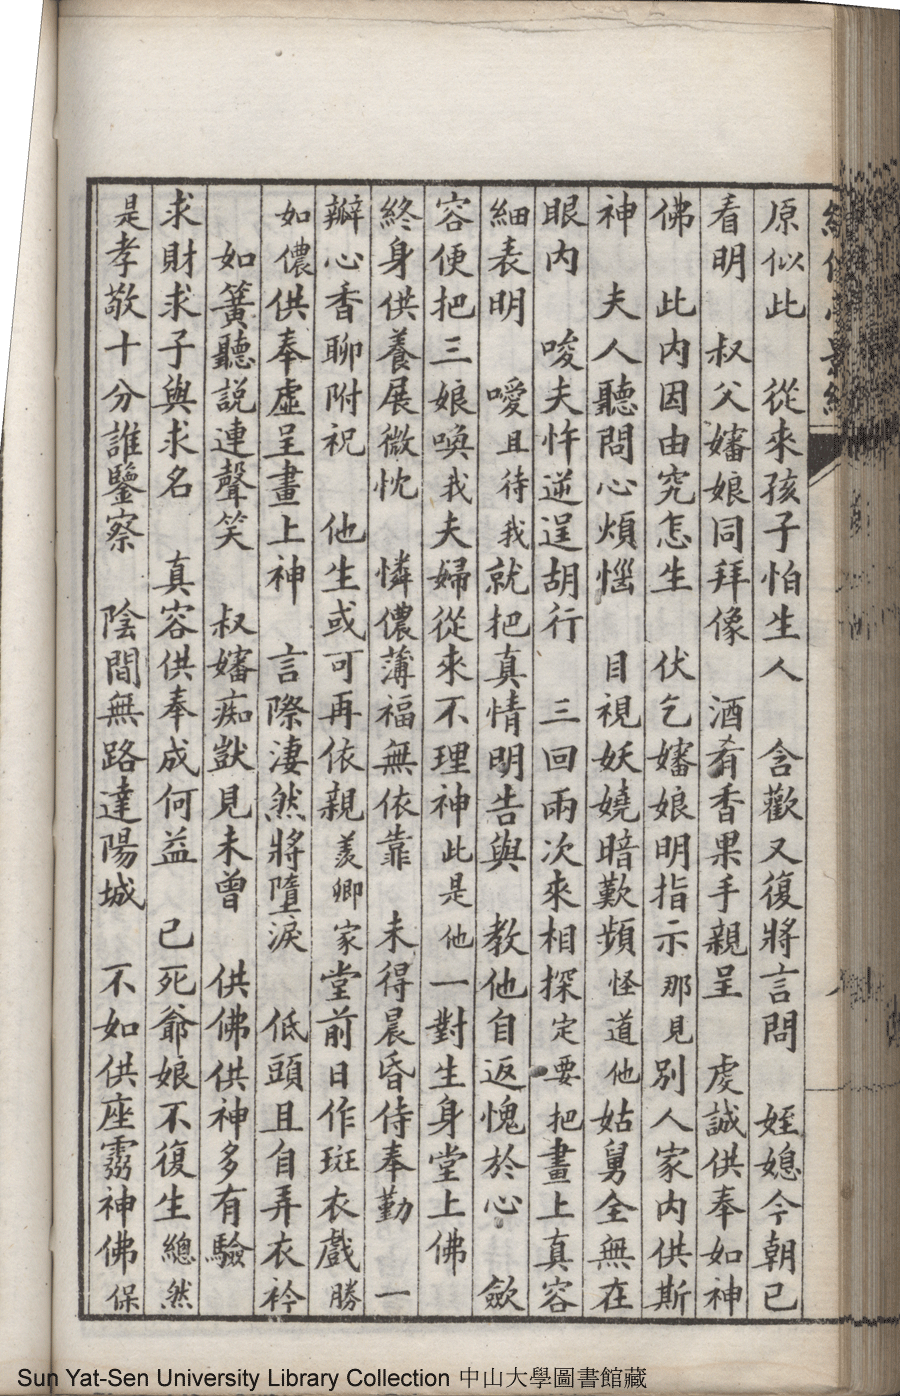 原似此　從來孩子怕生人　含歡又復將言問　姪媳今朝已
看明　叔父嬸娘同拜像　酒肴香果手親呈　虔誠供奉如神
佛　此內因由究怎生　伏乞嬸娘明指示那見別人家內供斯
神　夫人聽問心煩惱　目視妖嬈暗歎頻怪道他姑舅全無在
眼內　唆夫忤逆逞胡行　三回兩次來相探定要把畫上真容
細表明　噯且待我就把真情明告與　教他自返愧於心　歛
容便把三娘喚我夫婦從來不理神此是他一對生身堂上佛
終身供養展微忱　憐儂薄福無依靠　未得晨昏侍奉勤　一
瓣心香聊附祝　他生或可再依親羨卿家堂前日作斑衣戲勝
如儂供奉虛呈畫上神　言際淒然將墮淚　低頭且自弄衣衿
如簧聽説連聲笑　叔嬸痴獃見未曾　供佛供神多有驗
求財求子與求名　真容供奉成何益　已死爺娘不復生總然
是孝敬十分誰鑒察　陰間無路達陽城　不如供座靈神佛保
Sun Yat-Sen University Library Collection 中山大學圖書館藏